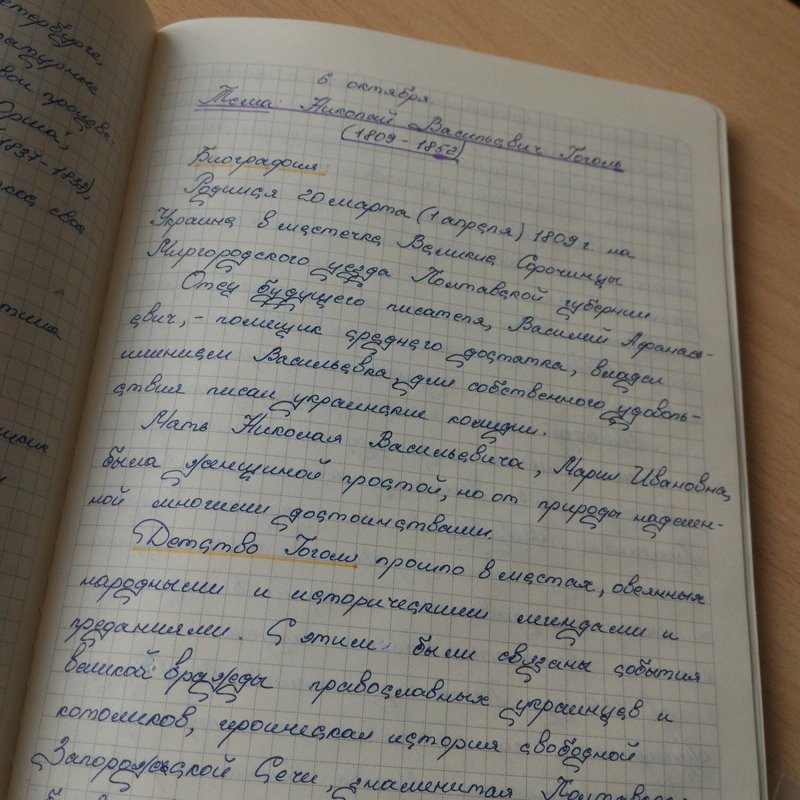 етербурге,
атурные
вои произве
Юрша",
1837-1838),
6 октября.
Тема: Николай Васильевич Гоголь
(1809 - 1852)
Биография:
Родился 20 марта (1 апреля) 1809 г. на
Украине в местечке Великие Сорочинцы
Миргородского уезда Полтавской губернии
Отец будущего писателя, Василий Афанась-
евич, - помещик среднего достатка, владел
имением Васильевка, для собственного удоволь-
ствия писал украинские комедии.
Мать Николая Васильевича, Мария Ивановна,
была женщиной простой, но от природы наделен-
ной многими достоинствами.
Детство Гоголя прошло в местах, овеянных
народными и историческими легендами и
преданиями. С этим были связаны события
великой вражды православных украинцев и
католиков, героическая история свободной
Запорожской Сечи, знаменитая Полтавс